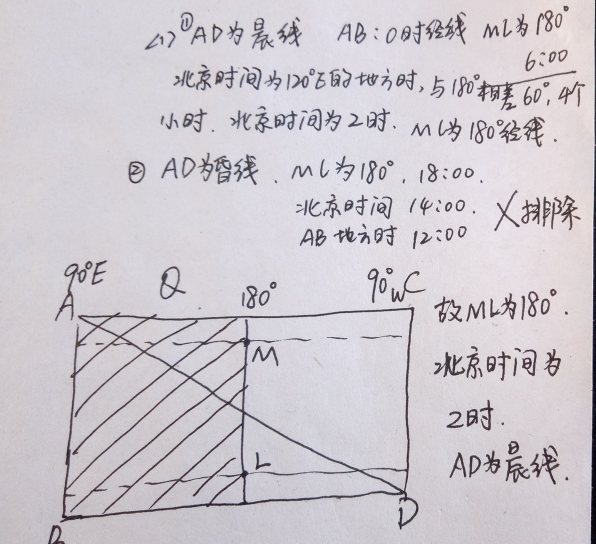 <1> ① AD为晨线 AB:0时经线 ML为180°
6:00
北京时间为120°E的地方时,与180°相差60°,4个
小时.北京时间为2时. ML为180°经线.
② AD为昏线. ML为180°, 18:00.
北京时间 14:00.
AB 地方时 12:00
╳排除
90°E Q 180° 90°W C
A
M
L
B
D
故ML为180°.
北京时间为
2时.
AD为晨线.